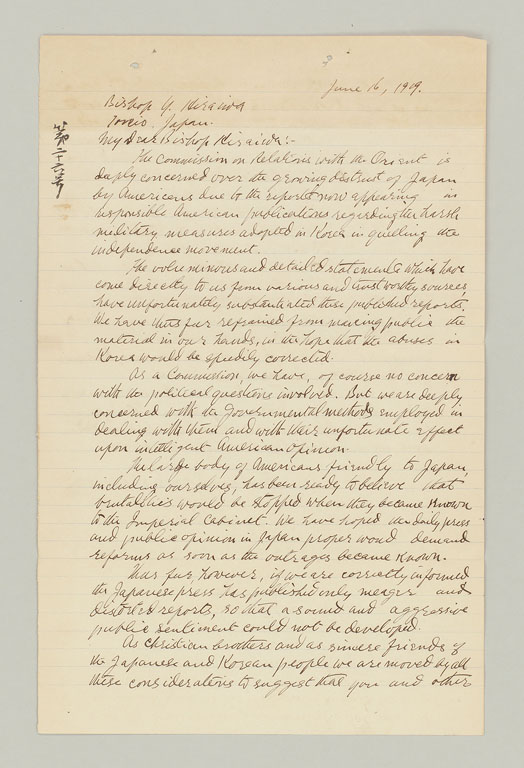 June 16, 1919.
Bishop Y. Hiraiwa
Tokio, Japan.
My Dear Bishop Hiraiwa:-
第二十六号
The Commission on Relations with the Orient is
deeply concerned over the growing distrust of Japan
by Americans due to the reports now appearing in
responsible American publications regarding the harsh
military measures adopted in Korea in quelling the
independence movement.
The voluminous and detailed statements which have
come directly to us from various and trustworthy sources
have unfortunately substantiated these published reports.
We have thus far refrained from making public the
material in our hands, in the hope that the abuses in
Korea would be speedily corrected.
As a Commission, we have, of course no concern
with the political questions involved. But we are deeply
concerned with the governmental methods employed in
dealing with them and with their unfortunate effect
upon intelligent American opinion.
The large body of Americans friendly to Japan,
including ourselves, has been ready to believe that
brutalities would be stopped when they became known
to the Imperial Cabinet. We have hoped the daily press
and public opinion in Japan proper would demand
reforms as soon as the outrages became known.
Thus far, however, if we are correctly informed
the Japanese press has published only meager and
distorted reports, so that a sound and aggressive
public sentiment could not be developed.
As christian brothers and as sincere friends of
the Japanese and Korean people we are moved by all
these considerations to suggest that you and other